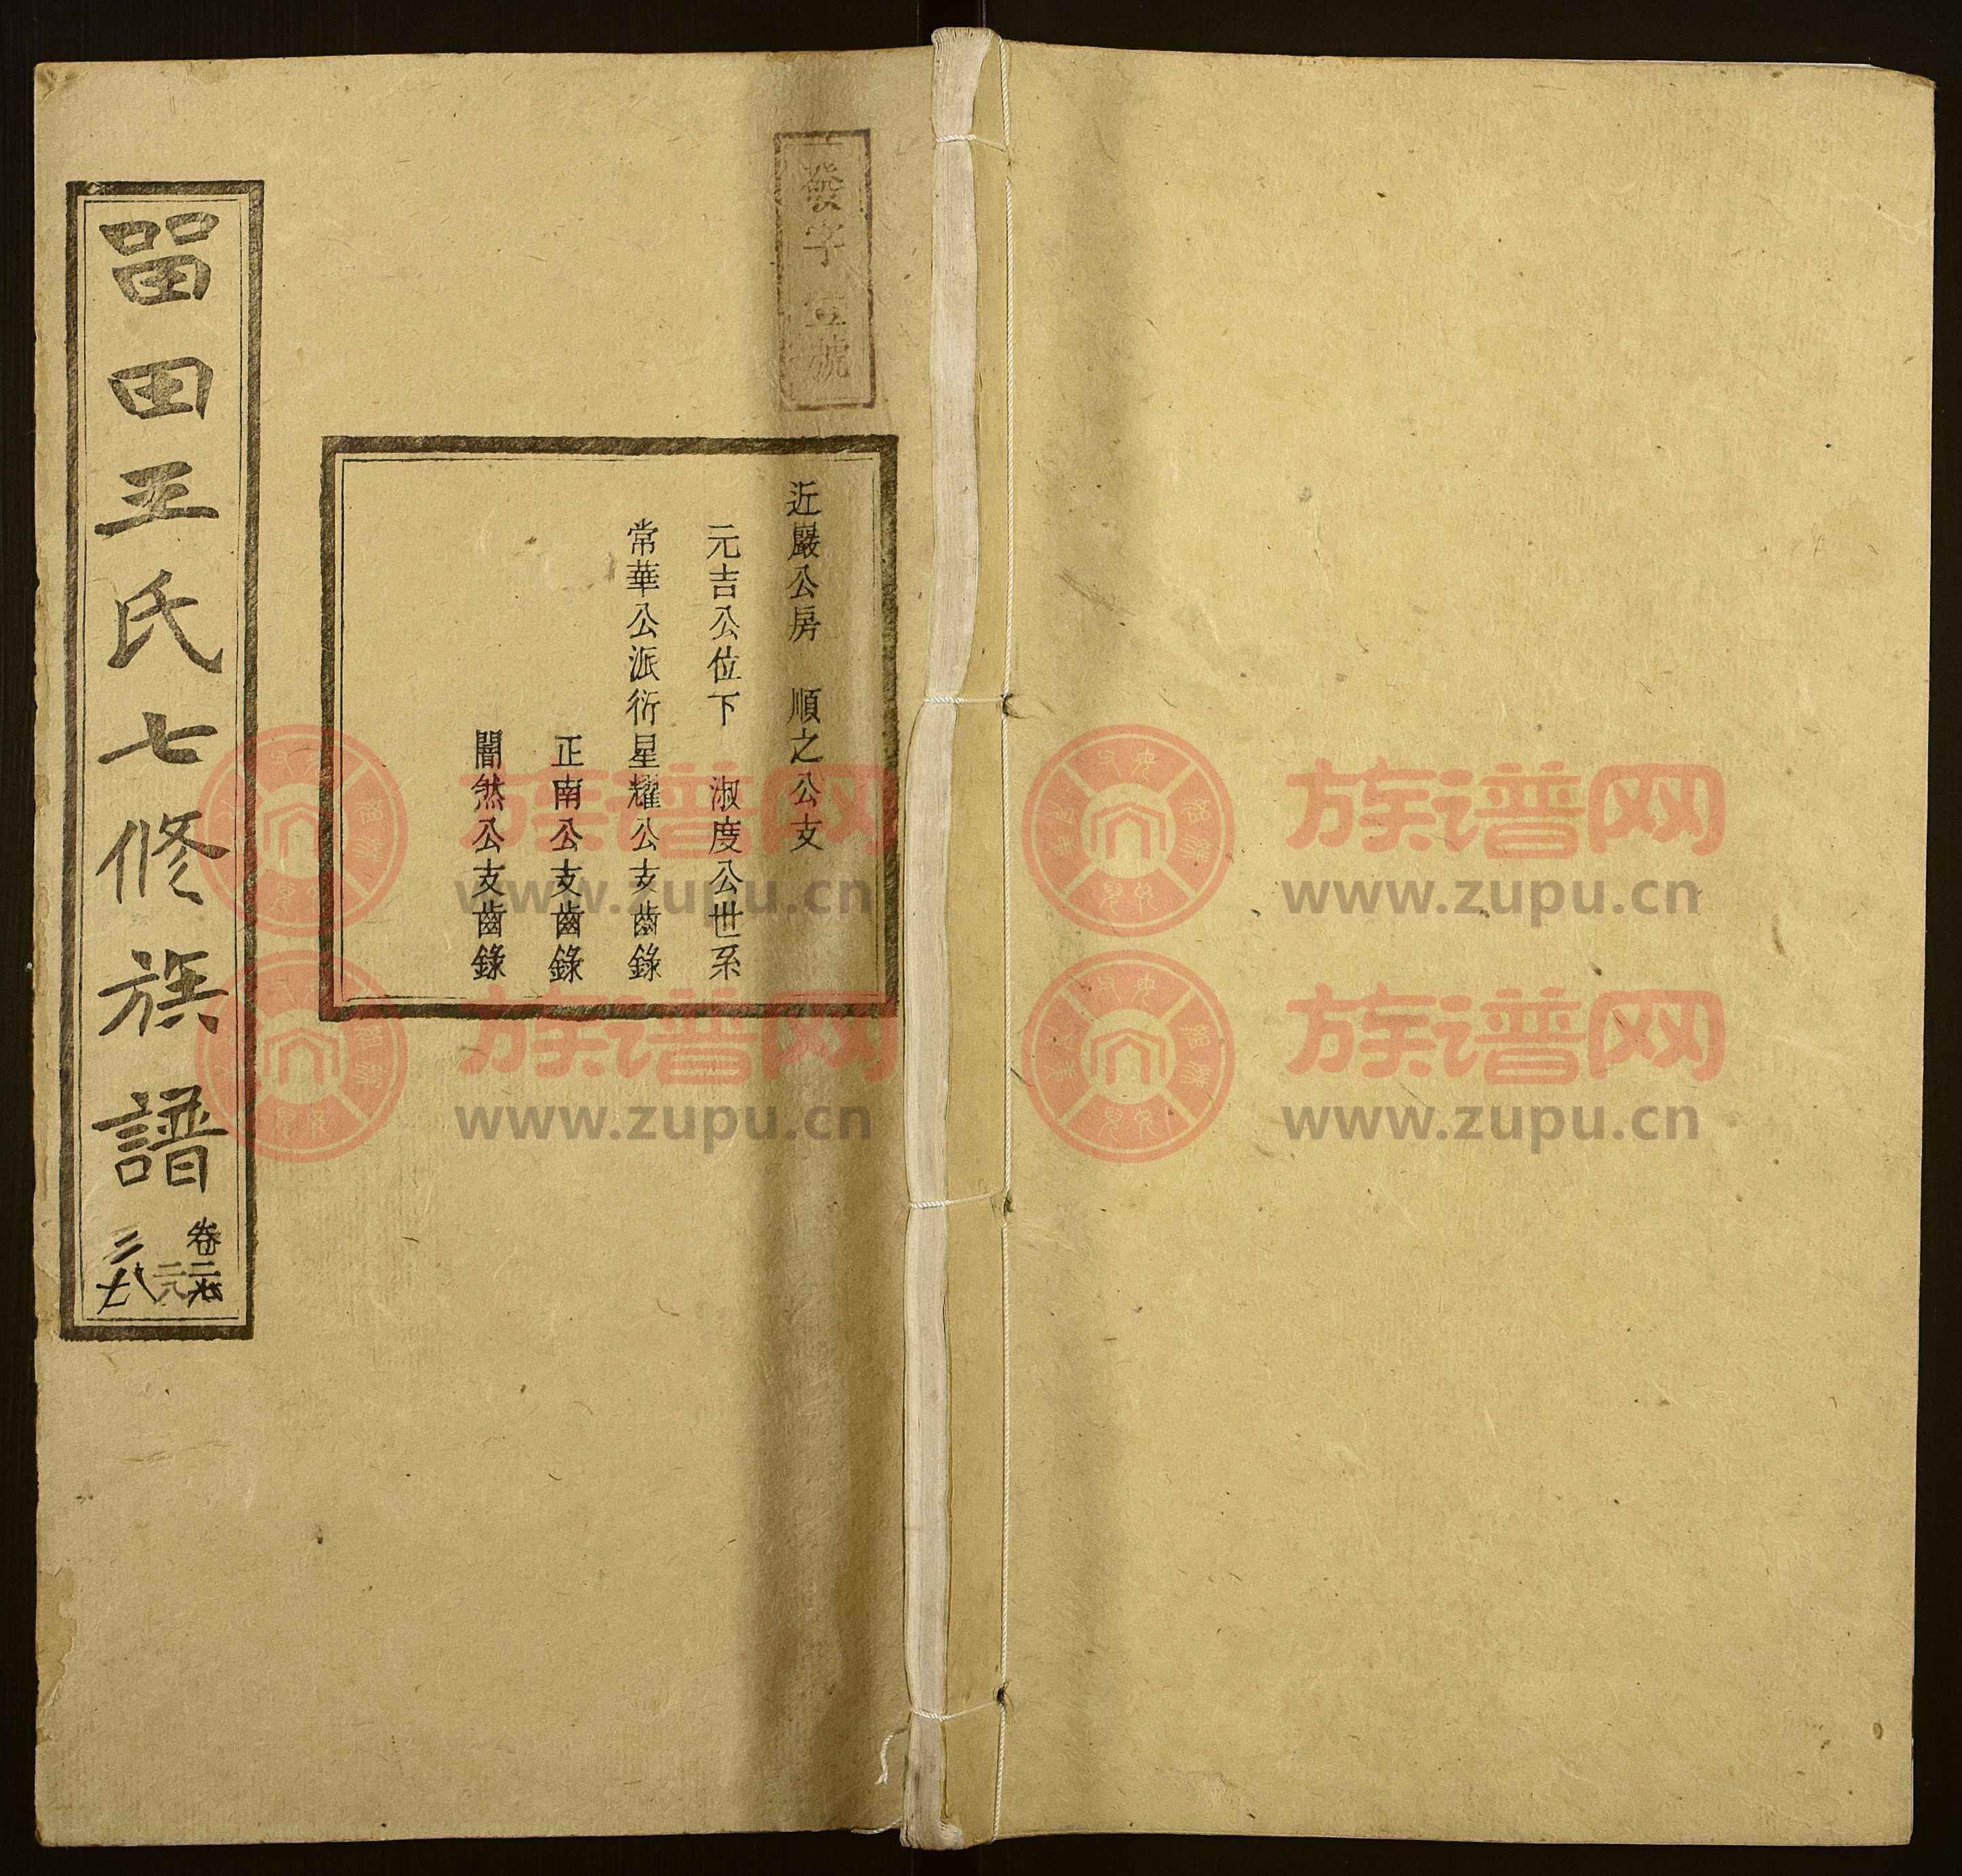 發字壹號
近巖公房 順之公支
元吉公位下 淑度公世系
常華公派衍星耀公支齒錄
正南公支齒錄
闇然公支齒錄
畱田王氏七修族譜
卷
族谱网
www.zupu.cn
族谱网
www.zupu.cn
族谱网
www.zupu.cn
族谱网
www.zupu.cn